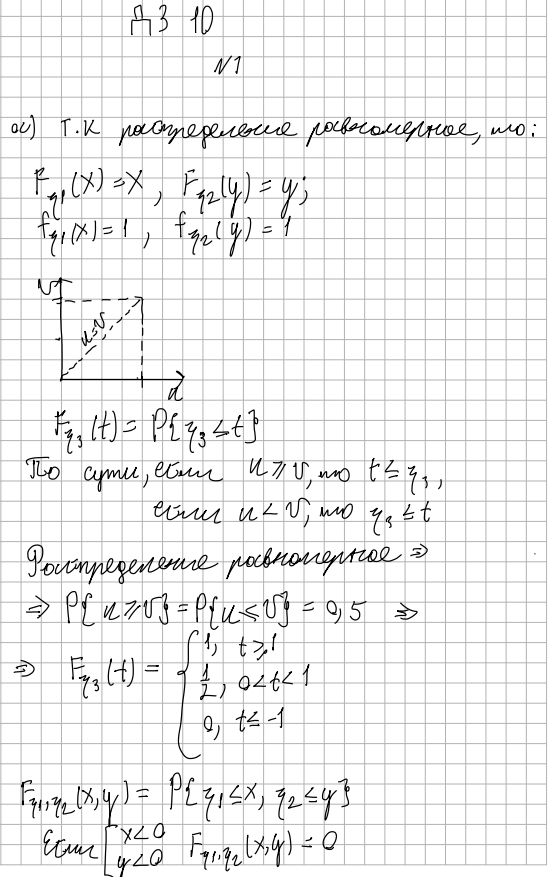 ДЗ 10
№1
а) Т.к распределение равномерное, то:
F_{η1}(x)=x, F_{η2}(y)=y;
f_{η1}(x)=1, f_{η2}(y)=1
v
u=v
u
F_{η3}(t)= P{η3≤t}
По сути, если u≥v, то t≤η3,
если u<v, то η3≤t
Распределение равномерное ⇒
⇒ P{u≥v}=P{u≤v}=0,5 ⇒
⇒ F_{η3}(t)= { 1, t≥1
1/2, 0<t<1
0, t≤-1
F_{η1,η2}(x,y)= P{η1≤x, η2≤y}
Если [ x<0 F_{η1,η2}(x,y)=0
y<0